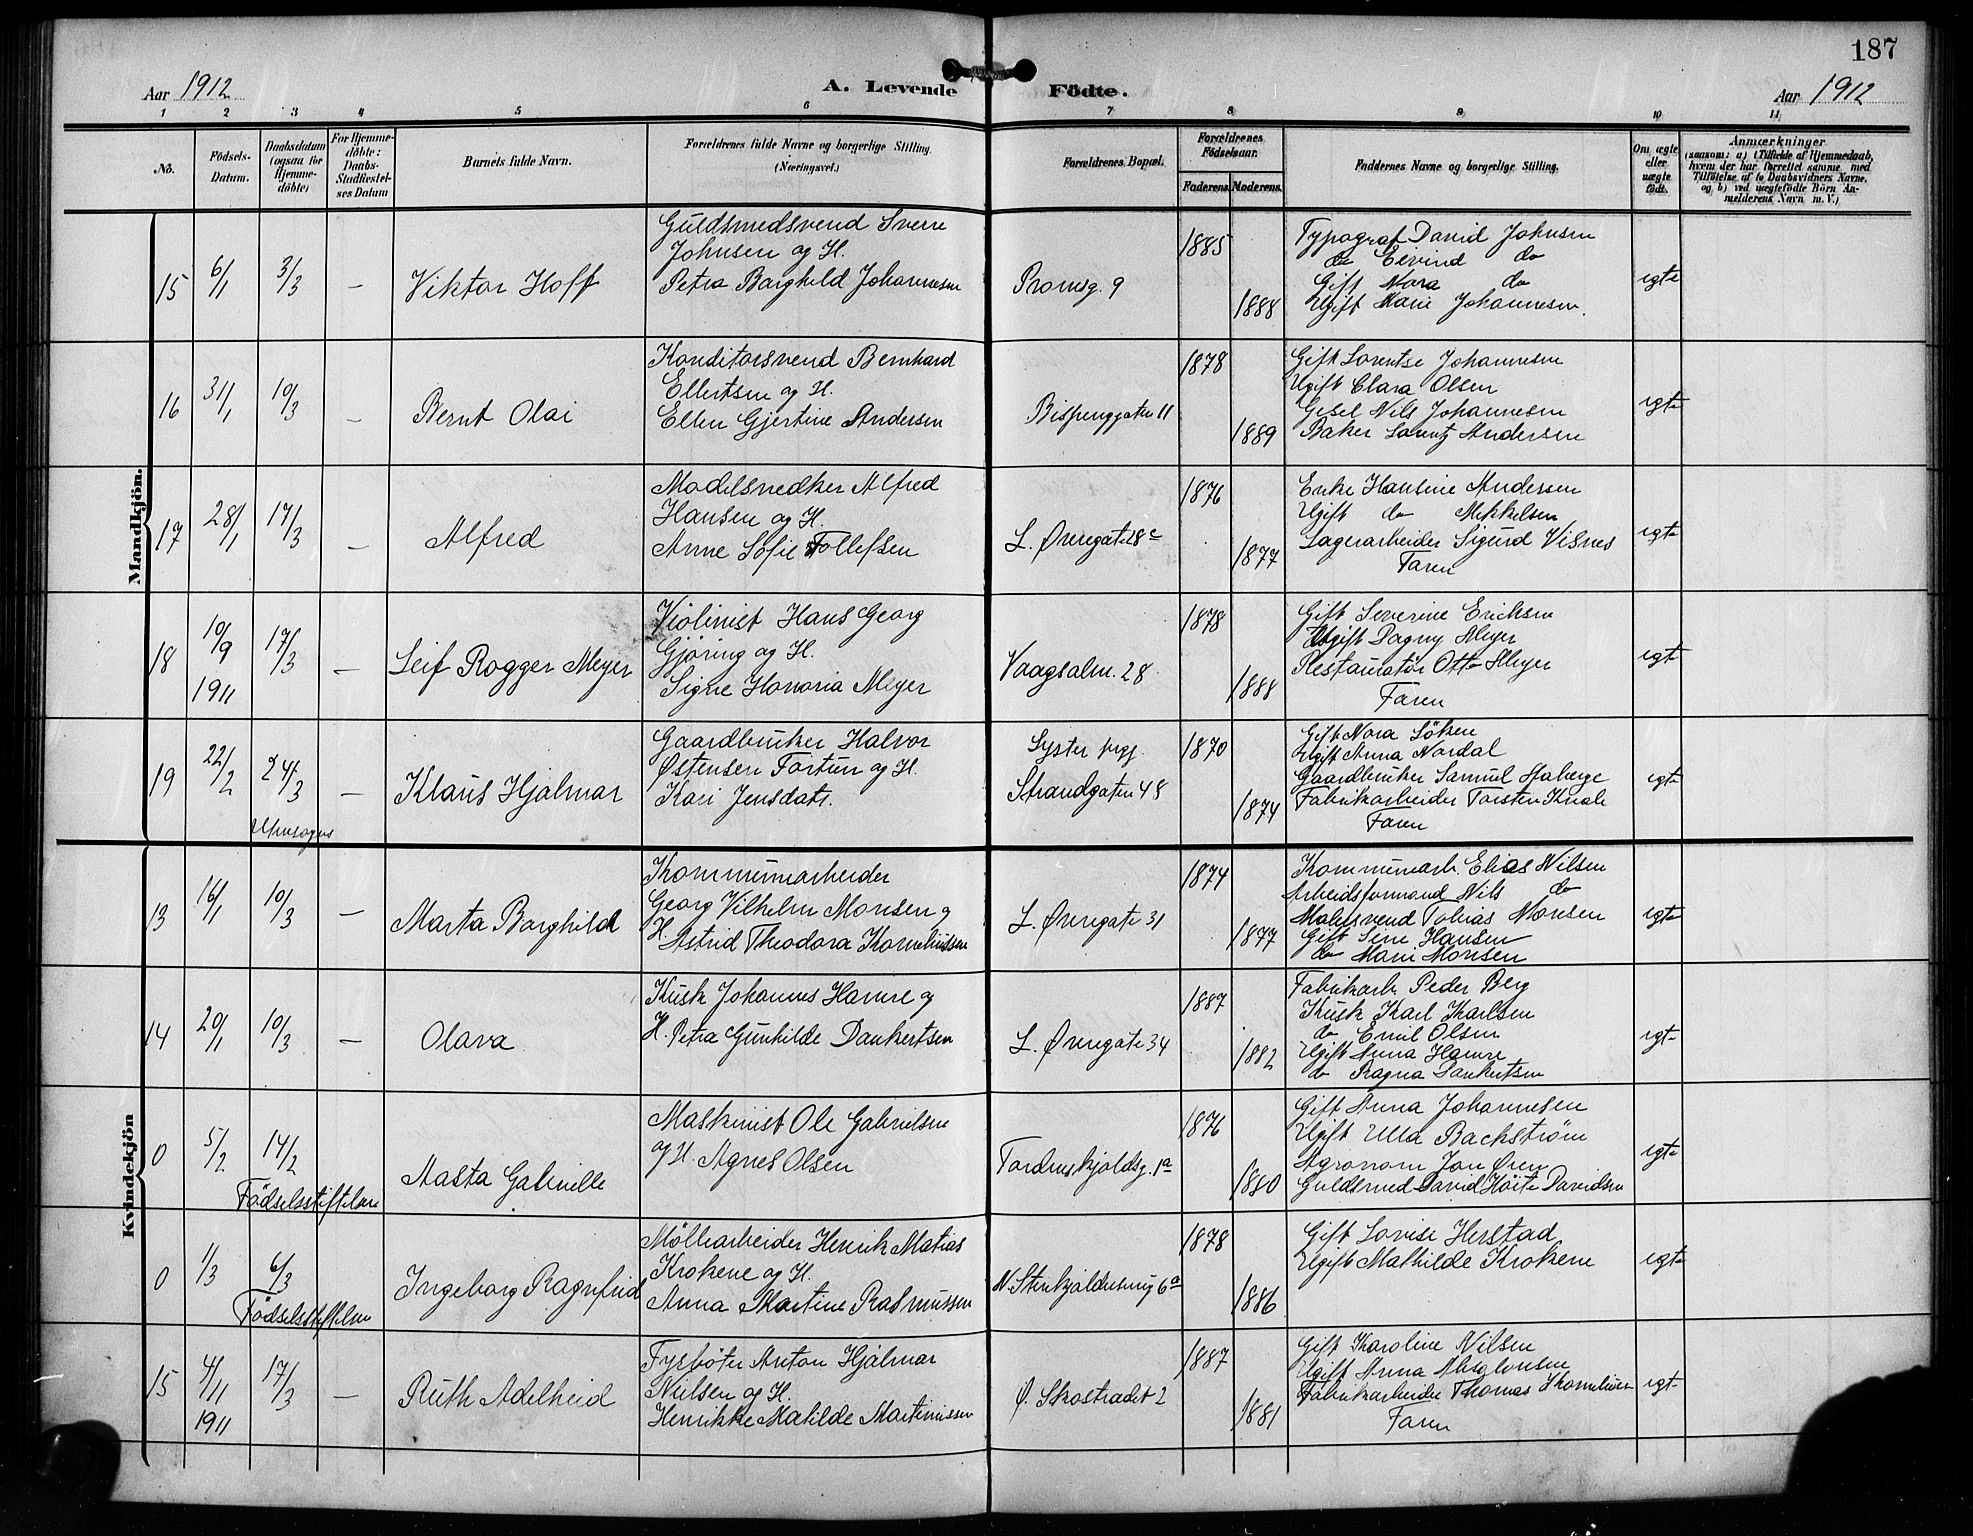 187
Aar 1912
A. Levende Födte.
Aar 1912
1 2 3 4 5 6 7 8 9 10 11
No.
Födsels-Datum.
Daabsdatum (ogsaa for Hjemme-döbte)
For Hjemme-döbte: Daabs-Stadfæstel-ses Datum
Barnets fulde Navn.
Forældrenes fulde Navne og borgerlige Stilling. (Næringsvei.)
Forældrenes Bopæl.
Forældrenes Födselsaar.
Faderens. Moderens.
Faddernes Navne og borgerlige Stilling.
Om ægte eller uægte födt.
Anmærkninger
(saasom: a) Tilfælde af Hjemmedaab,
hvem der har forrettet samme med
Tilföielse af to Daabsvidners Navne,
og b) ved uægtefödte Börn An-
melderens Navn m. V.)
Mandkjön.
15 6/1 3/3 — Viktor Hoff
Guldsmedsvend Sverre
Johnsen og H.
Petra Borghild Johannesen
Promsg. 9
1885
1888
Typograf David Johnsen
do Eivind do
Gift Nora do
Ugift Marie Johannesen.
egte
16 31/1 10/3 — Bernt Olai
Konditorsvend Bernhard
Ellertsen og H.
Ellen Gjertine Andersen
Bispenggaten 11
1878
1889
Gift Lorentse Johannesen
Ugift Clara Olsen
Gisel Nils Johannesen
Baker Lauritz Andersen
egte
17 28/1 17/3 — Alfred
Modelsnedker Alfred
Hansen og H.
Anne Sofie Tollefsen
L. Øvregate 28c
1876
1877
Enke Hansine Andersen
Ugift do Mikkelsen
Lagerarbeider Sigurd Visnes
Faren
egte
18 10/9 1911 17/3 — Leif Rogger Meyer
Violinist Hans Georg
Gjøring og H.
Signe Honoria Meyer
Vaagsalm. 28
1878
1888
Gift Severine Ericksen
Ugift Dagny Meyer
Restauratør Otto Meyer
Faren
egte
19 22/2 24/3 — Klaus Hjalmar
Gaardbruker Halvor
Østensen Fortun og H.
Kari Jensdatr.
Lyster prgj.
Strandgaten 48
1870
1874
Gift Nora Söken
Ugift Anna Nordal
Gaardbruker Samuel
Fabrikarbeider Torsten
Faren
egte
Kvindekjön
13 16/1 10/3 — Marta Borghild
Kommunearbeider
Georg Vilhelm Monsen og
H. Astrid Theodora Korneliussen
L. Øvregate 31
1874
1877
Kommunearb. Elias Nilsen
Arbeidsformand Nils do
Malersvend Tobias Monsen
Gift Sine Hansen
do Marie Monsen
egte
14 20/1 10/3 — Olava
Kusk Johannes Hamre og
H. Petra Gunhilde Dankertsen
L. Øvregate 34
1887
1882
Fabrikarb. Peder Berg
Kusk Karl Karlsen
do Emil Olsen
Ugift Anna Hamre
do Ragna Dankertsen
egte
0 5/2 14/2 Aasta Gabrielle
Födselsstiftelsen
Maskinist Ole Gabrielsen
og H. Agnes Olsen
Tordenskjoldsg. 1a
1876
1880
Gift Anna Johannesen
Ugift Ulla Backstrøm
Agronom Jon Øren
Guldsmed David Høite Davidsen
egte
0 1/3 6/3 Ingeborg Ragnfrid
Födselsstiftelsen
Møllearbeider Henrik Matias
Krokene og H.
Anna Martine Rasmussen
N. Stenkjeldersmug 6a
1878
1886
Gift Lovise Herstad
Ugift Mathilde Krokene
egte
15 4/11 1911 17/3 — Ruth Adelheid
Fyrbøter Anton Hjalmar
Nielsen og H.
Henrikke Matilde Martinussen
Ø. Skostrædet 2
1887
1881
Gift Karoline Nilsen
Ugift Anna Absalonsen
Fabrikarbeider Thomas Korneliusen
Faren
egte